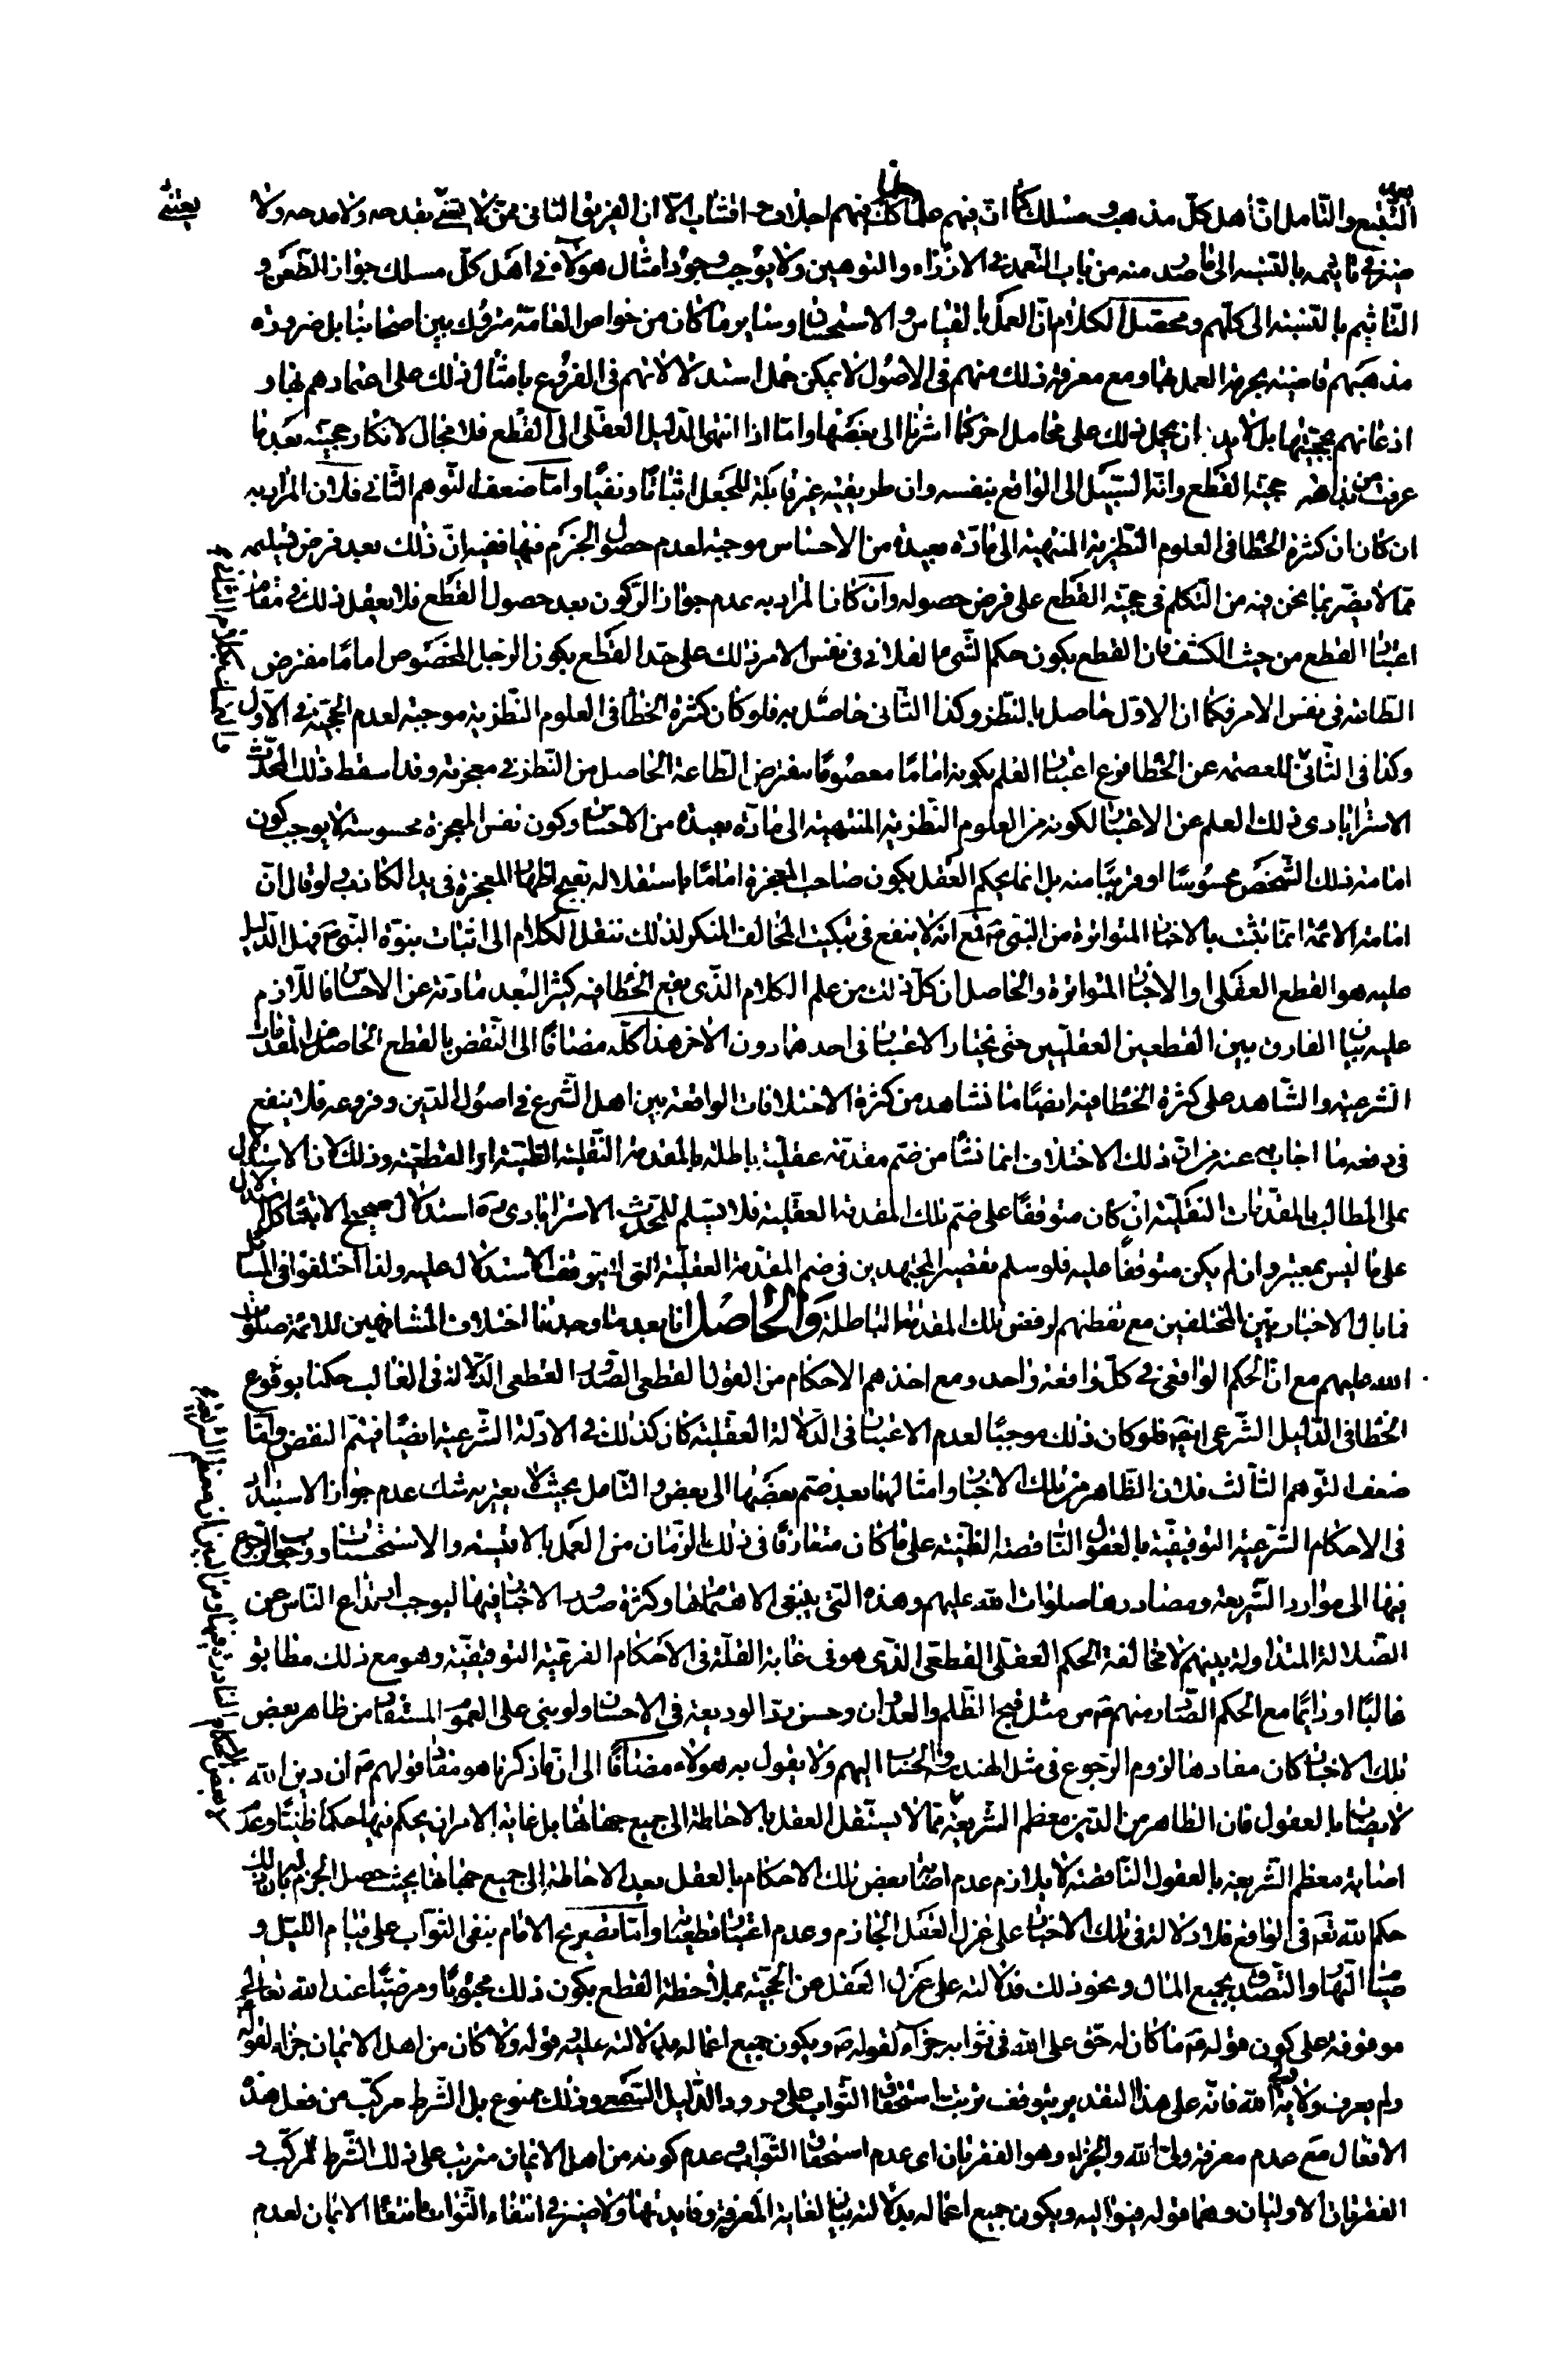 التتبع والتامل ان اهل كل مذهب ومسلك كما ان فيهم علماء كك فيهم اجلاف اقشاب الا ان الفريق الثاني ممن لا يعتنى بقدحه ولا مدحه ولا
ضير في تاثيمه بالنسبة الى ما صدر منه من باب التعمد في الازراء والتوهين ولا يوجب وجود امثال هؤلاء في اهل كل مسلك جواز الطعن و
التاثيم بالنسبة الى كلهم ومحصل الكلام ان العمل بالقياس والاستحسان وساير ما كان من خواص العامة متروك بين اصحابنا بل ضرورة
مذهبهم قاضية بحرمة العمل بها ومع معرفة ذلك منهم في الاصول لا يمكن حمل استدلالاتهم في الفروع بامثال ذلك على اعتمادهم بها و
اذعانهم بحجيتها بل لا بد ان يحمل ذلك على محامل اخر كما اشرنا الى بعضها واما اذا انتهى الدليل العقلى الى القطع فلا مجال لانكار حجيته بعد ما
عرفت من بداهة حجية القطع وانه السبيل الى الواقع بنفسه وان طريقيته غير قابلة للجعل اثباتا ونفيا واما ضعف التوهم الثاني فلان المراد به
ان كان ان كثرة الخطا في العلوم النظرية المنتهية الى مادة بعيدة من الاحساس موجبة لعدم حصول الجزم منها ففيه ان ذلك بعد فرض تسليمه
مما لا يضر بما نحن فيه من التكلم في حجية القطع على فرض حصوله وان كان المراد به عدم جواز الركون بعد حصول القطع فلا يعقل ذلك في مقام
اعتبار القطع من حيث الكشف فان القطع بكون حكم الشيء الفلاني في نفس الامر ذلك على حد القطع بكون الرجل المخصوص اماما مفترض
الطاعة في نفس الامر فكما ان الاول حاصل بالنظر وكذا الثاني حاصل به فلو كان كثرة الخطا في العلوم النظرية موجبة لعدم الحجية في الاول
وكذا في الثاني للعصمة عن الخطا فرع اعتبار العلم بكونه اماما معصوما مفترض الطاعة الحاصل من النظر في معجزته وقد اسقط ذلك المحدث
الاسترابادى ذلك العلم عن الاعتبار لكونه من العلوم النظرية المنتهية الى مادة بعيدة من الاحساس وكون نفس المعجزة محسوسة لا يوجب كون
امامة ذلك الشخص محسوسا او قريبا منه بل انما يحكم العقل بكون صاحب المعجزة اماما باستقلاله بقبح اظهار المعجزة في يد الكاذب ولو قال ان
امامة الائمة انما تثبت بالاخبار المتواترة من النبي ص مع انه لا ينفع في تبكيت المخالف المنكر لذلك ننقل الكلام الى اثبات نبوة النبي ص فهل الدليل
عليه هو القطع العقلى او الاخبار المتواترة والحاصل ان كل ذلك من علم الكلام الذى يقع الخطا فيه كثير البعد مادته عن الاحساس فاللازم
عليه بيان الفارق بين القطعين العقليين حتى نختار الاعتبار في احدهما دون الاخر هذا كله مضافا الى النقض بالقطع الحاصل من المقدمات
الشرعية والشاهد على كثرة الخطا فيه ايضا ما نشاهد من كثرة الاختلافات الواقعة بين اهل الشرع في اصول الدين وفروعه فلا ينفع
في دفعه ما اجاب به عنه من ان ذلك الاختلاف انما نشا من ضم مقدمة عقلية باطلة بالمقدمة النقلية الظنية او القطعية وذلك لان الاستدلال
على المطالب بالمقدمات النقلية ان كان متوقفا على ضم تلك المقدمة العقلية فلا يسلم للمحدث الاسترابادى ره استدلال صحيح لابتناء كل استدلال
على ما ليس بمعتبر وان لم يكن متوقفا عليه فلو سلم تقصير المجتهدين في ضم المقدمة العقلية التي لا يتوقف الاستدلال عليه ولذا اختلفوا في المسائل
فما بال الاخباريين المختلفين مع تفطنهم لرفض تلك المقدمة الباطلة والحاصل انا بعد ما وجدنا اختلاف المشافهين للائمة صلوات
الله عليهم مع ان الحكم الواقعي في كل واقعة واحد ومع اخذهم الاحكام من القول القطعى الصدور القطعى الدلالة في الغالب حكمنا بوقوع
الخطا في الدليل الشرعى ايضا فلو كان ذلك موجبا لعدم الاعتبار في الدلالة العقلية كان كذلك في الادلة الشرعية ايضا فيتم النقض واما
ضعف التوهم الثالث فلان الظاهر من تلك الاخبار وامثالها بعد ضم بعضها الى بعض والتامل بحيث لا يعتريه شك عدم جواز الاستبداد
في الاحكام الشرعية التوقيفية بالعقول الناقصة الظنية على ما كان متعارفا في ذلك الزمان من العمل بالاقيسة والاستحسانات ووجوب الرجوع
فيها الى موارد الشريعة ومصادرها صلوات الله عليهم وهذه التي ينبغى الاهتمام لها وكثرة صدور الاخبار فيها ليوجب ارتداع الناس عن
الضلالة المتداولة بينهم لا مخالفة الحكم العقلى القطعى الذى هو في غاية القلة في الاحكام الفرعية التوقيفية وهو مع ذلك مطابق
غالبا او دائما مع الحكم الصادر منهم ع من مثل قبح الظلم والعدوان وحسن رد الوديعة في الاحسان ولو بنى على العموم المستفاد من ظاهر بعض
تلك الاخبار كان مفادها لزوم الرجوع في مثل الهندسة والحساب اليهم ولا يقول به هؤلاء مضافا الى ان ما ذكرنا هو مفاد قولهم ع ان دين الله
لا يصاب بالعقول فان الظاهر من الدين معظم الشريعة مما لا يستقل العقل بالاحاطة الى جميع جهاتها بل غاية الامر ان يحكم فيها حكما ظنيا وعدم
اصابة معظم الشريعة بالعقول الناقصة لا يلازم عدم اصابة بعض تلك الاحكام بالعقل بعد الاحاطة الى جميع جهاتها بحيث حصل الجزم فيه بان ذلك
حكم الله تعم في الواقع فلا دلالة في تلك الاخبار على عزل العقل الجازم وعدم اعتبار قطعيته واما تصريح الامام بنفى الثواب على قيام الليل و
صيام النهار والتصدق بجميع المال ونحو ذلك فدلالته على عزل العقل عن الحجية بملاحظة القطع بكون ذلك محبوبا ومرضيا عند الله تعالى
موقوفة على كون قوله ع ما كان له حق على الله في ثوابه جزاء لقوله ع ويكون جميع اعماله بدلالته عليه قوله ولا كان من اهل الايمان جزاء لقوله
ولم يعرف ولاية ولى الله فانه على هذا التقدير يتوقف ترتب استحقاق الثواب على ورود الدليل السمعى وذلك ممنوع بل الشرط مركب من فعل هذه
الافعال مع عدم معرفة ولى الله والجزاء وهو الفقرتان اى عدم استحقاق الثواب وعدم كونه من اهل الايمان مترتب على ذلك الشرط المركب و
الفقرتان الاوليان وهما قوله فيتواليه ويكون جميع اعماله بدلالته بيان لغاية المعرفة وفايدتها ولا ضير في انتفاء الثواب بانتفاء الايمان لعدم